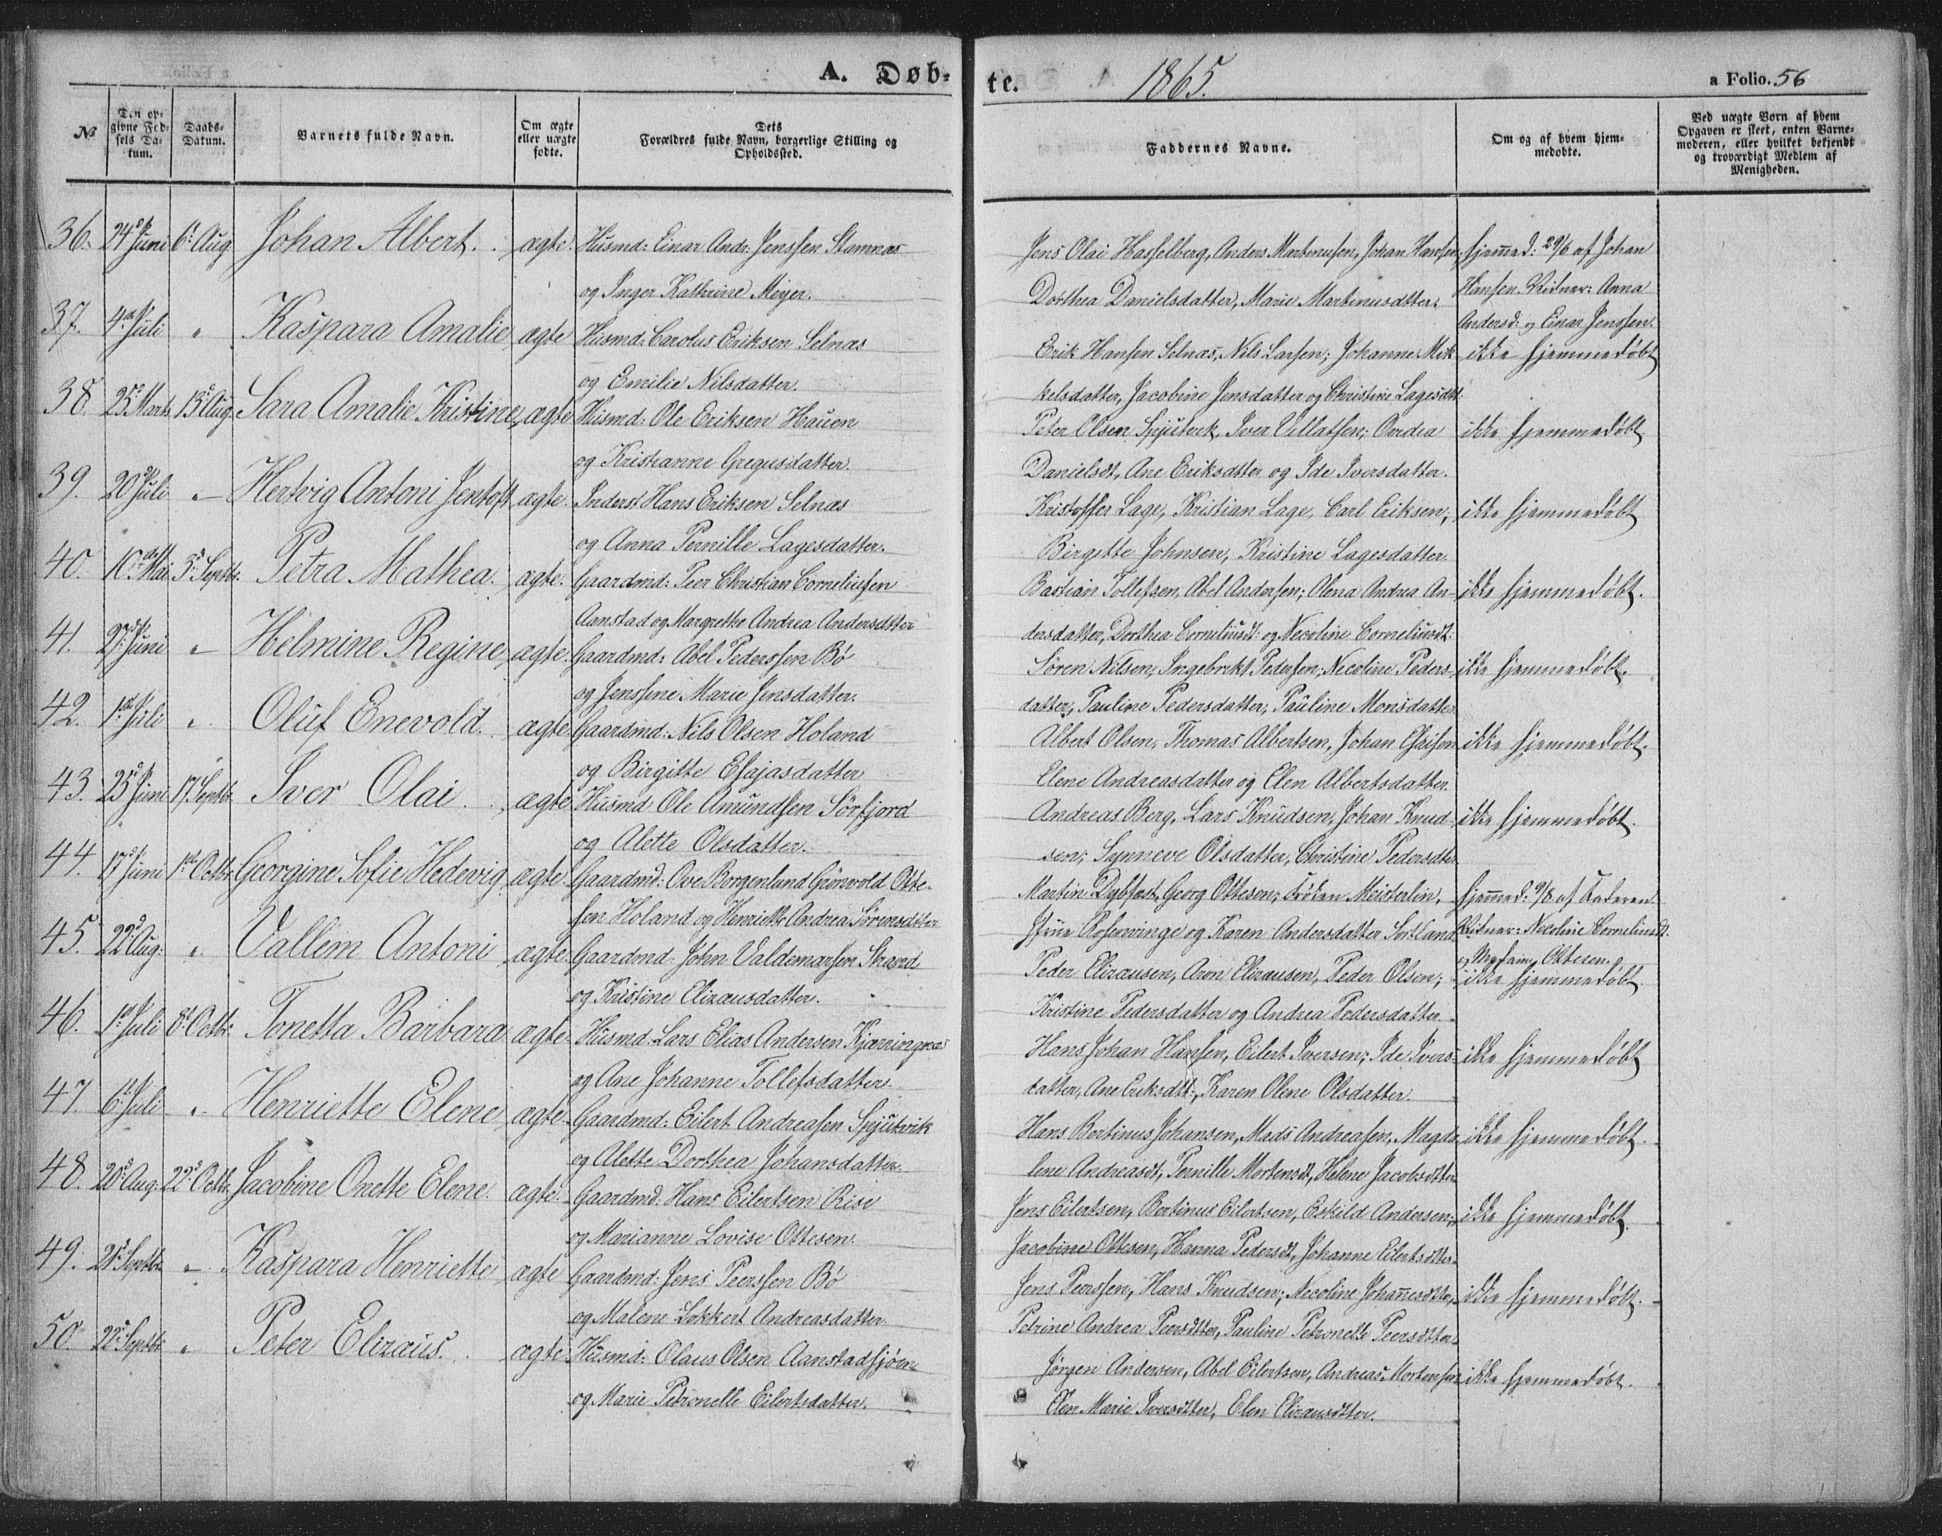 A. Døb-
te.
1865.
a Folio. 56
No
Den op-
givne Fød-
sels Da-
tum.
Daabs-
Datum.
Barnets fulde Navn.
Om ægte
eller uægte
fødte.
Dets
Forældres fulde Navn, borgerlige Stilling og
Opholdssted.
Faddernes Navne.
Om og af hvem hjem-
medøbte.
Ved uægte Børn af hvem
Opgaven er skeet, enten Barne-
moderen, eller hvilket bekjendt
og troværdigt Medlem af
Menigheden.
36. 24de Juni 6te Aug. Johan Albert. ægte. Husmd: Einar Andr: Jenssen Stamnæs
og Inger Kathrine Meyer.
Jens Olai Hasselberg, Anders Martinusen, Johan Hansen,
Dorthea Danielsdatter, Marie Martinusdtter.
hjemmed: 29/6 af Johan
Hansen. Vidner: Anna
Andersd: og Einar Jenssen.
37. 4de Juli " Kaspara Amalie, ægte Husmd: Carolus Eriksen Selnæs
og Emilie Nilsdatter.
Erik Hansen Selnæs, Nils Larsen; Johanne Mik-
kelsdatter, Jacobine Jensdatter og Christine Lagesdtt.
ikke hjemmedøbt
38. 25de Marts 13de Aug. Sara Amalie Kristine, ægte Husmd: Ole Eriksen Hauen
og Kristianne Gregusdatter.
Peter Olsen Spjutvik, Iver Villatsen; Ovedia
Danielsdt, Ane Eriksdtter og Ide Iversdatter.
ikke hjemmedøbt
39. 20de Juli " Hertvig Antoni Jentoft ægte. Inderst Hans Eriksen Selnæs
og Anna Pernille Lagesdatter.
Kristoffer Lage, Kristian Lage, Carl Eriksen;
Birgitte Johnsen, Kristine Lagesdatter
ikke hjemmedøbt
40. 10de Mai 3de Septbr. Petra Mathea. ægte. Gaardmd: Peer Christian Corneliussen
Aanstad og Margrethe Andrea Andersdtter
Bastian Tollefsen, Abel Andersen; Olena Andrea An-
dersdatter, Dorthea Corneliusdt: og Necoline Corneliusdt:
ikke hjemmedøbt.
41. 27de Juni " Helmine Regine, ægte. Gaardmd: Abel Pederssen Bø
og Jenssine Marie Jensdatter.
Søren Nilsen, Ingebrikt Pedersen, Necoline Peders-
datter, Pauline Pedersdatter, Pauline Monsdatter
ikke hjemmedøbt.
42. 1ste Juli " Oluf Enevold. ægte Gaardmd: Nils Olsen Holand
og Birgitte Esajasdatter
Albert Olsen, Thomas Albertsen, Johan Esaisen
Elene Andreasdatter og Elen Albertsdatter.
ikke hjemmedøbt.
43. 25de Juni 17. Septbr. Iver Olai. ægte Husmd Ole Amundsen Sörfjord
og Alette Olsdatter.
Andreas Berg, Lars Knudsen, Johan Knud-
sen; Synneve Olsdatter, Christine Pedersdtter
ikke hjemmedøbt.
44. 17de Juni 1ste Octbr. Georgine Sofie Hedevig, ægte Gaardmd: Ove Borgenlund Grönvold Otte-
sen Holand og Henriette Andrea Sörensdtter
Martin Dybfest, Georg Ottesen; Frøken Meisterlin,
Stine Rosenvinge og Karen Andersdatter Sortland.
hjemmed: 9/8 af Faderen.
Vidner: Necoline Corneliusd.
og Madam Ottesen.
45. 22de Aug: " Vallem Antoni ægte Gaardmd: John Valdemarsen Strand
og Kristine Elizæusdatter.
Peder Elizæusen, Aron Elizæusen, Peder Olsen;
Kristine Pedersdatter og Andrea Pedersdatter
ikke hjemmedøbt.
46. 1ste Juli 8de Octbr: Tonetta Barbara ægte. Husmd: Lars Elias Andersen Kjærringnæs
og Ane Johanne Tollefsdatter.
Hans Johan Hansen, Eilert Iversen; Ide Ivers-
datter, Ane Eriksdt:, Karen Olene Olsdatter.
ikke hjemmedøbt
47. 6te Juli " Henriette Elene, ægte. Gaardmd: Eilert Andreasen Spjutvik
og Alette Dorthea Johansdatter.
Hans Bertinus Johansen, Mads Andreasen, Magda-
lene Andreasdt, Pernille Mortensdt, Helene Jacobsdtter
ikke hjemmedøbt.
48. 20de Aug: 22de Octbr. Jacobine Onette Elene. ægte. Gaardmd: Hans Eilertsen Rise
og Marianne Lovise Ottesen.
Jens Eilertsen, Bertinus Eilertsen, Eskild Andersen;
Jacobine Ottesen, Hanna Pedersdt, Johanne Eilertsdtter
ikke hjemmedøbt.
49. 21de Septbr. " Kaspara Henriette, ægte Gaardmd: Jens Peerssen Bö
og Malene Lokkert Andreasdatter
Jens Peerssen, Hans Knudsen; Necoline Johannesdtter,
Petrine Andrea Peersdtter, Pauline Petronelle Peersdtter
ikke hjemmedøbt.
50. 22de Septbr. " Peter Elizæus. ægte Husmd: Olaus Olsen Aanstadsjöen
og Marie Petronelle Eilertsdatter.
Jørgen Andersen, Abel Eilertsen, Andreas Mortensen
Elen Marie Iversdtter, Elen Elizæusdtter.
ikke hjemmedøbt.